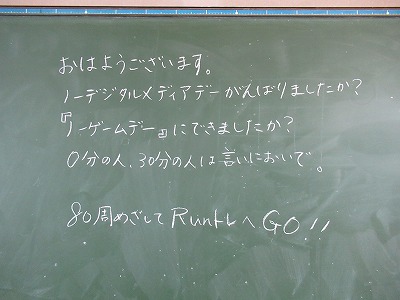 おはようございます。
ノーデジタルメディアデーがんばりましたか?
『ノーゲームデー』にできましたか?
0分の人、30分の人は言いにおいで。
80周めざしてRunトレへGO!!